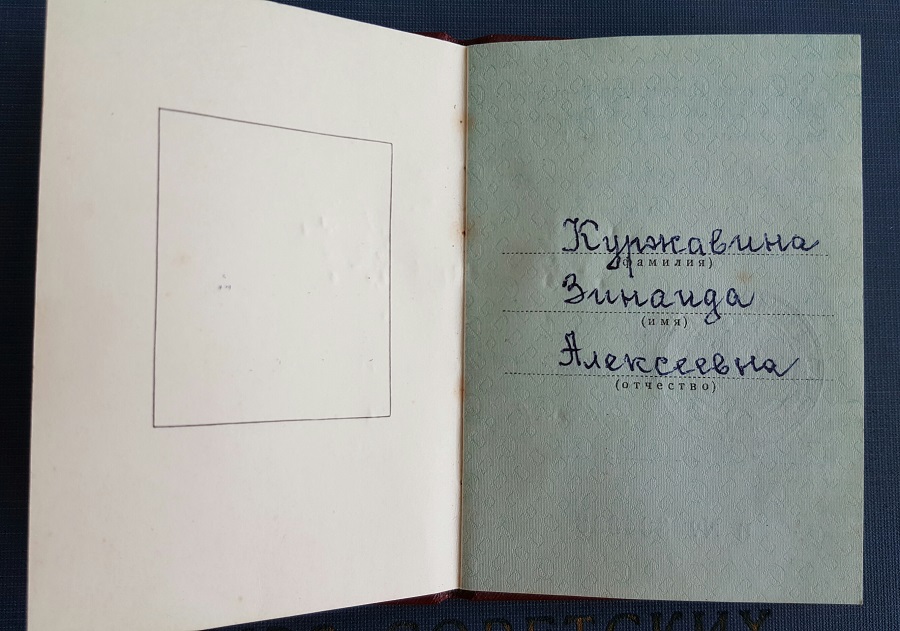 Куржавина
(фамилия)
Зинаида
(имя)
Алексеевна
(отчество)
СОВЕТСКИХ